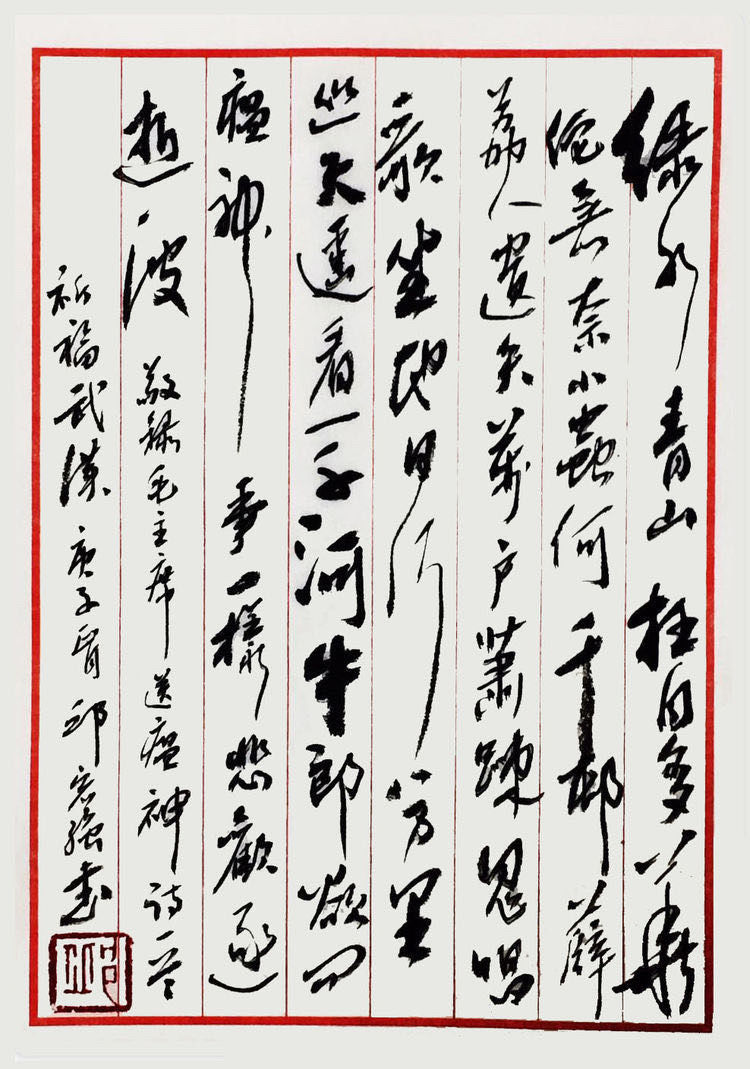 绿水青山枉自多華
佗無奈小蟲何千邨薜
荔人遺矢萬户蕭疎鬼唱
歌坐地日行八万里
巡天遥看一千河牛郎欲问
瘟神事一樣悲歡逐
逝波 敬録毛主席送瘟神诗一首
祈福武漢庚子邱宏强书